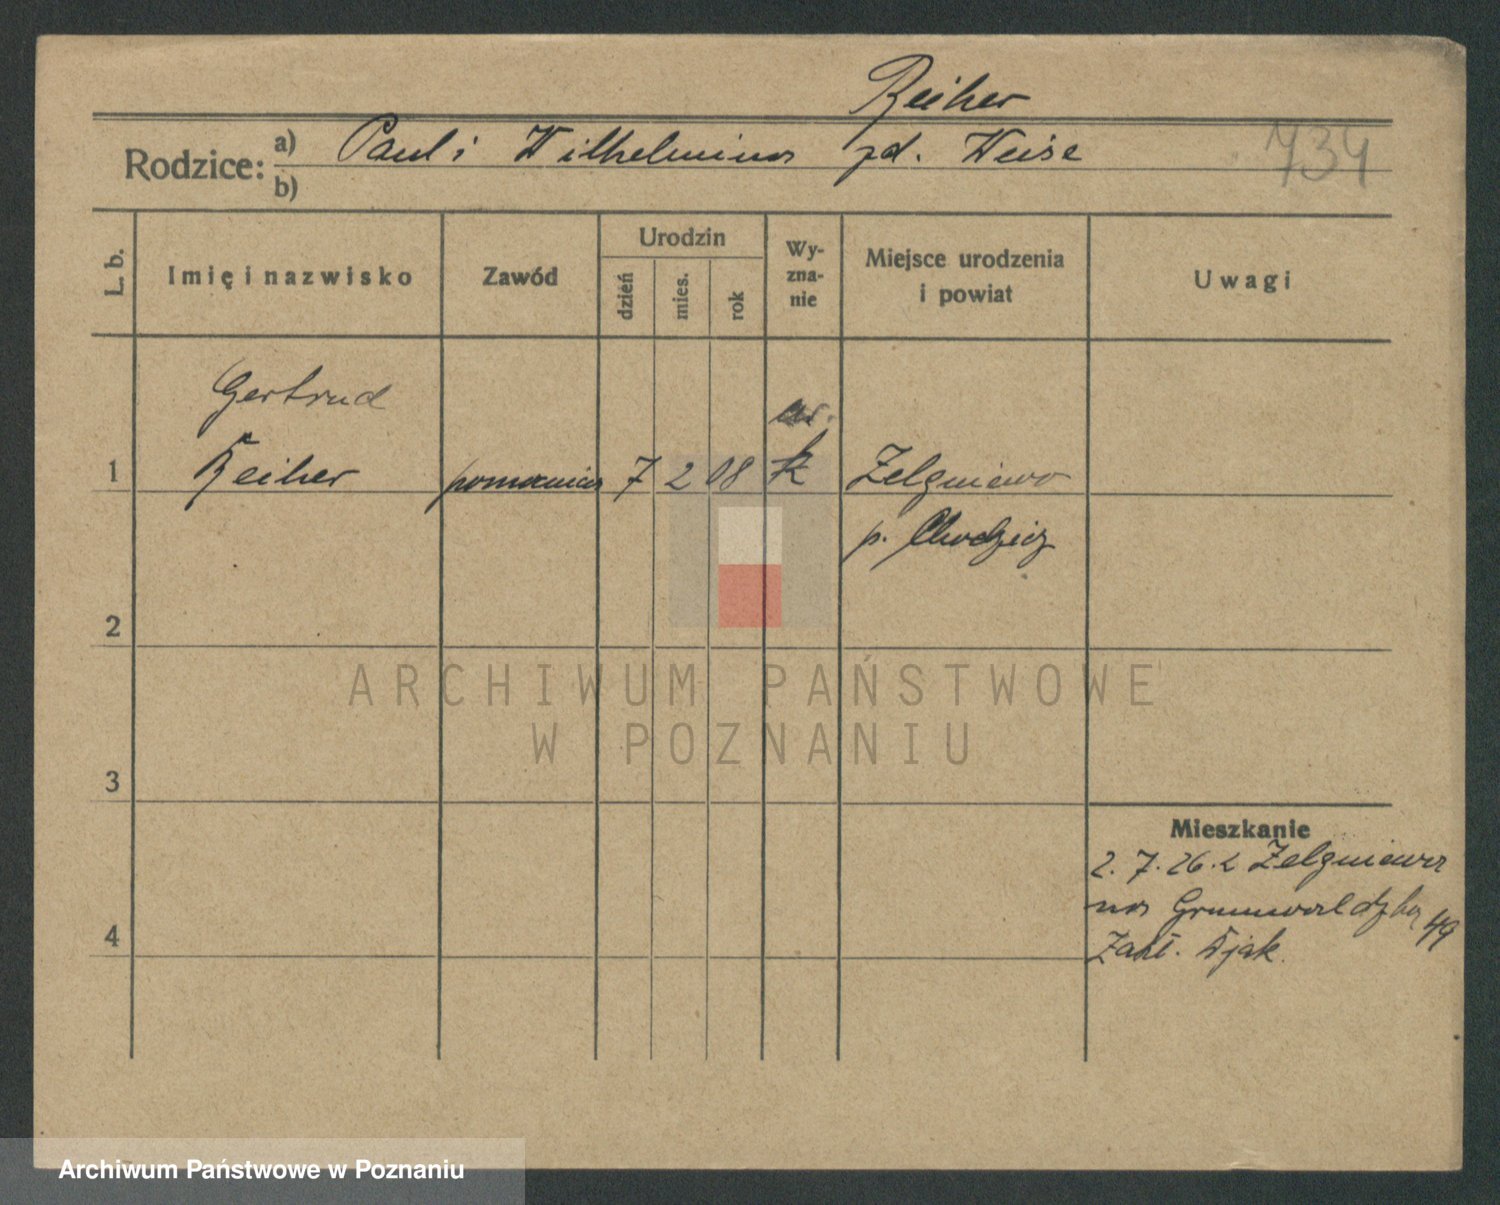 Reiher
Rodzice: a) Paul i Wilhelmina zd. Weise
734
b)
L. b.
Imię i nazwisko
Zawód
Urodzin
dzień
mies.
rok
Wy-
zna-
nie
Miejsce urodzenia
i powiat
Uwagi
Gertrud
1 Reiher pomocnica 7 2 08 k Zelgniewo
p. Chodzież
2
3
Mieszkanie
2. 7. 26. z Zelgniewa
na Grunwaldzką 49
4
ARCHIWUM PAŃSTWOWE
W POZNANIU
Archiwum Państwowe w Poznaniu